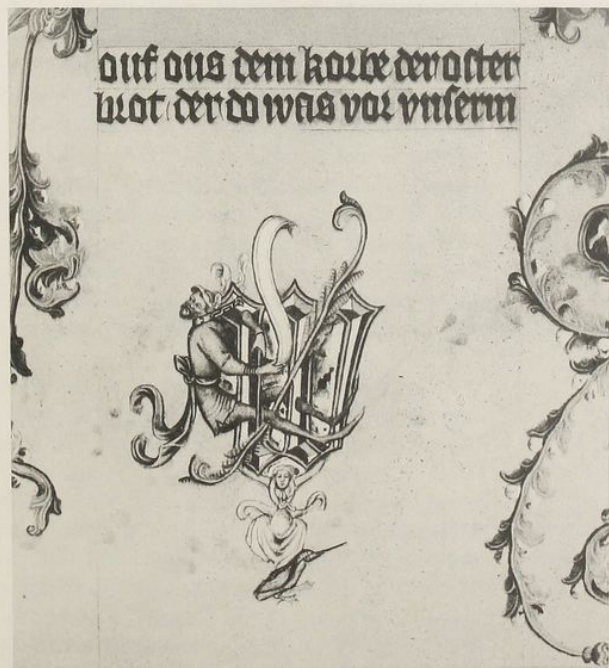 auf aus dem korbe der opfer
brot der do was vor vnserm